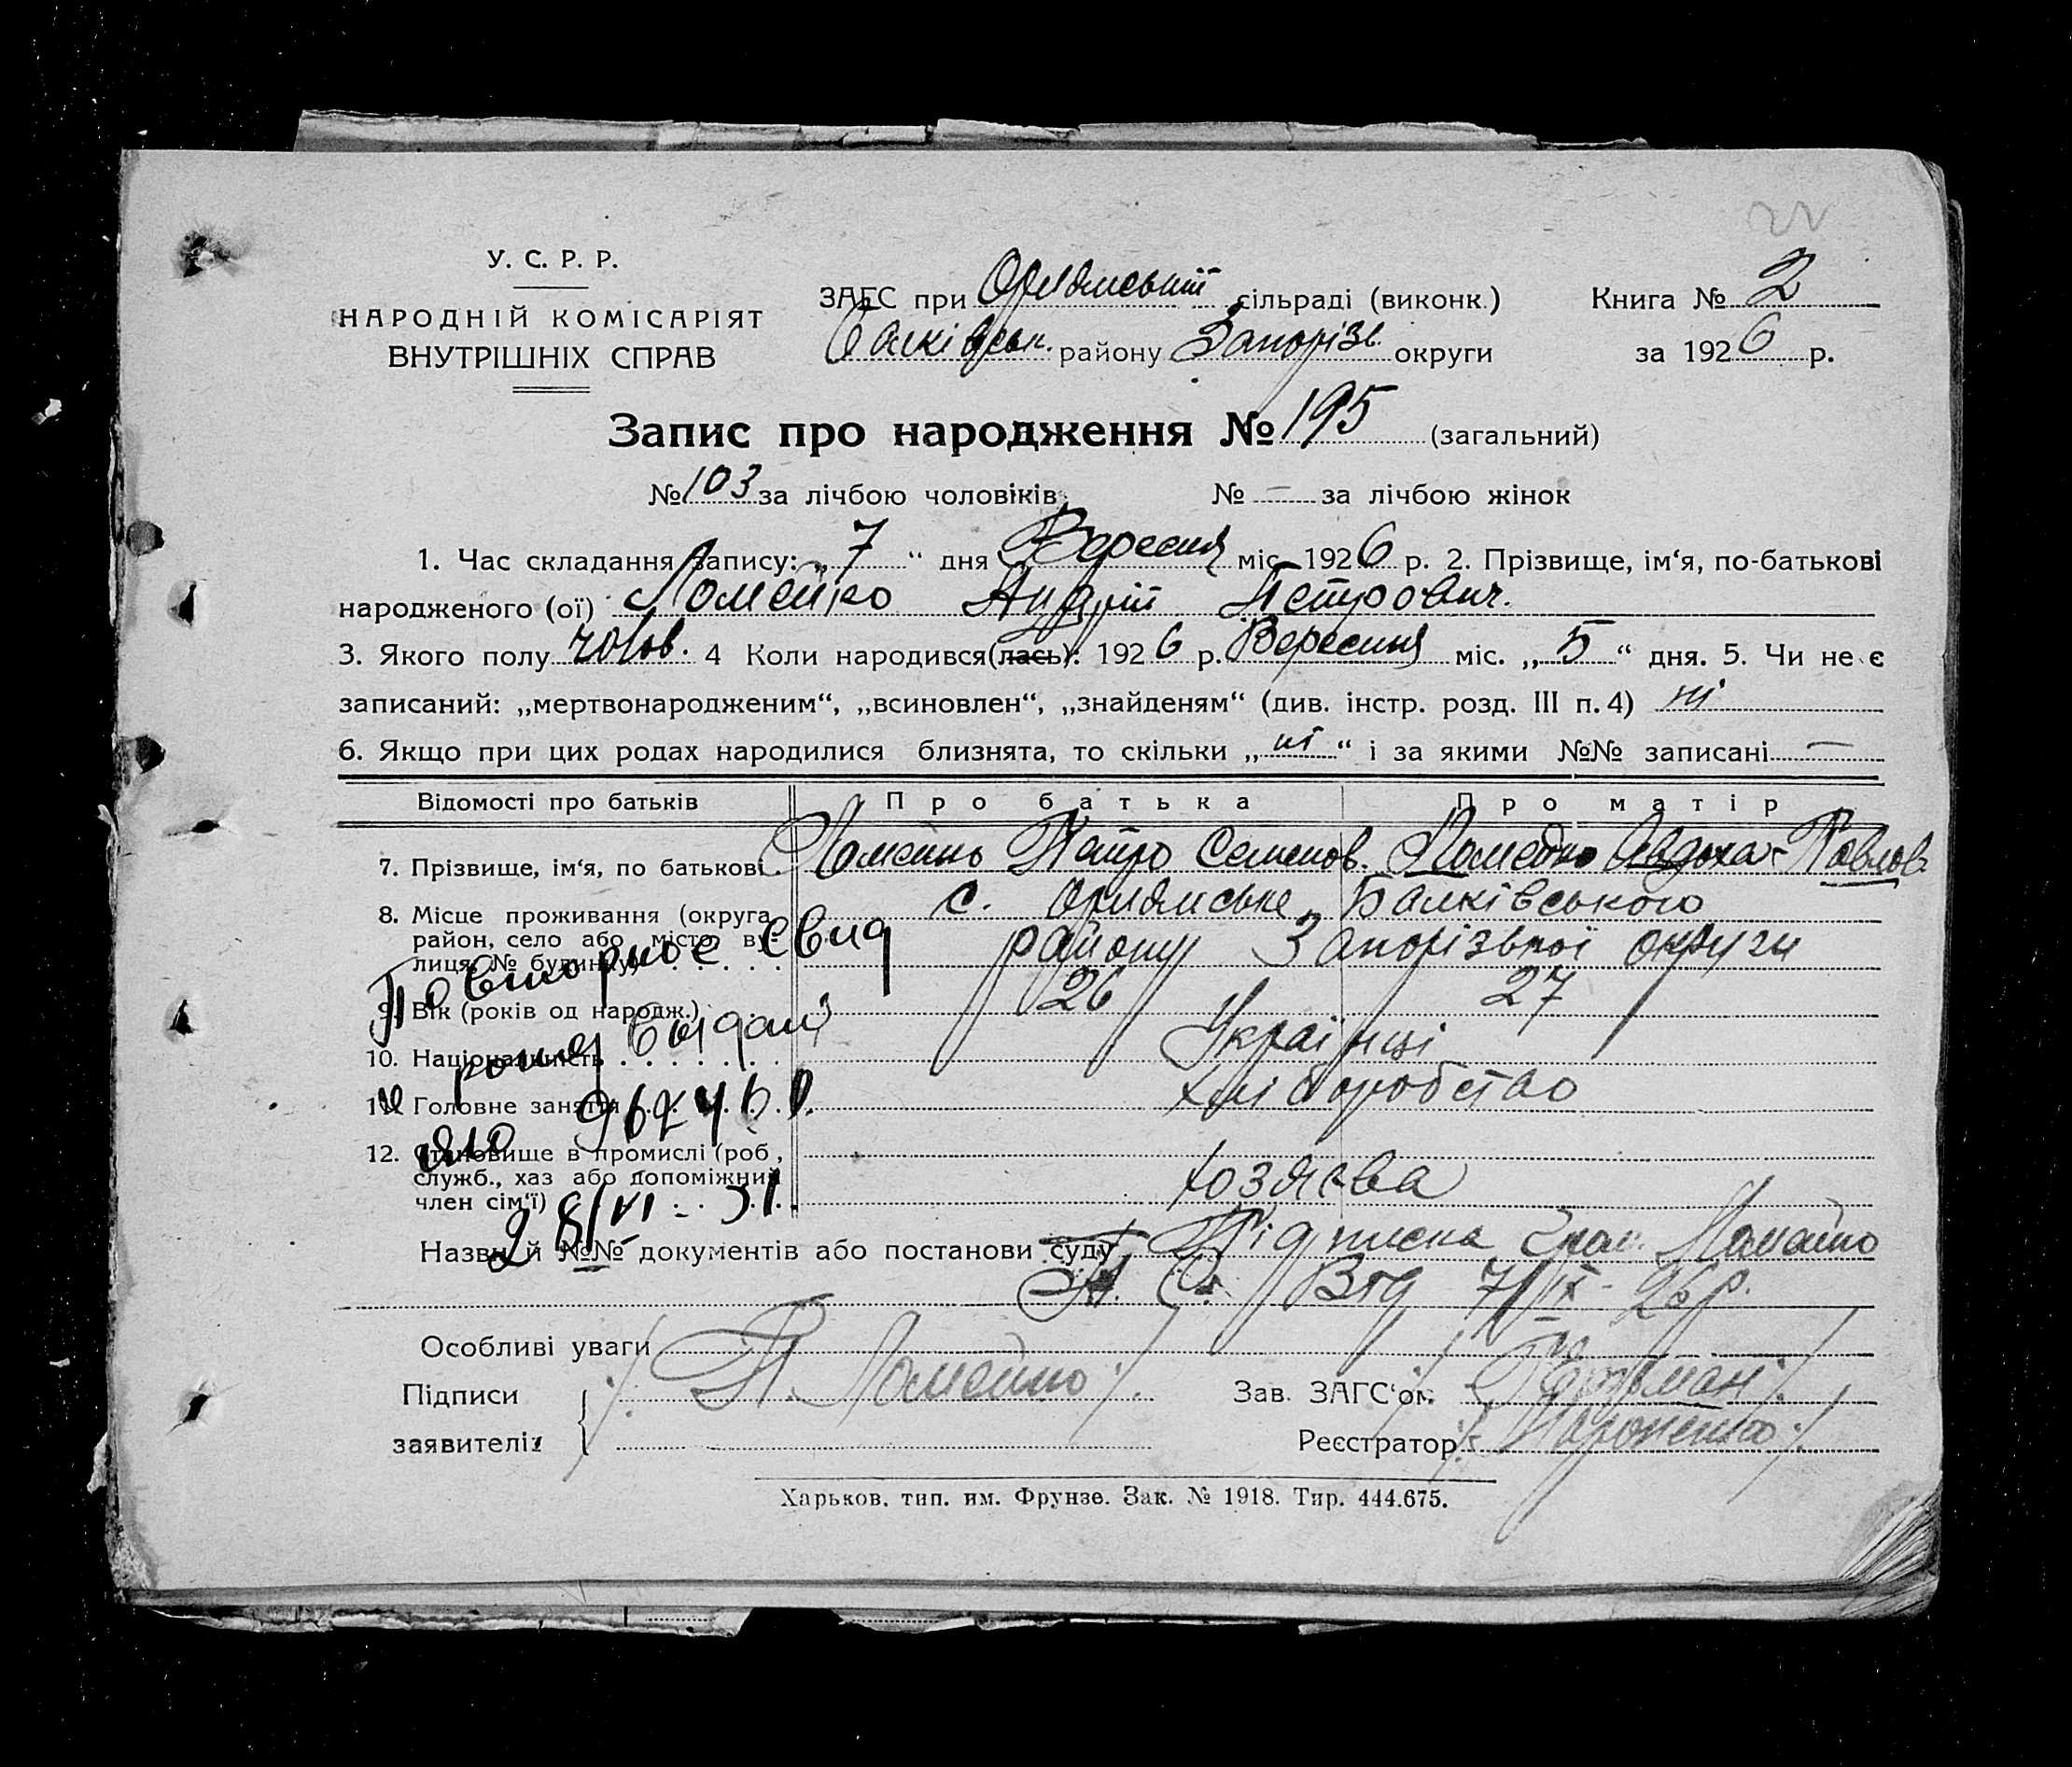 У. С. Р. Р.
НАРОДНІЙ КОМІСАРІЯТ
ВНУТРІШНІХ СПРАВ
ЗАГС при Орлянській сільраді (виконк.)
Балківськ. району Запорізь. округи
Книга № 2
за 1926 р.
Запис про народження № 195 (загальний)
№ 103 за лічбою чоловіків № — за лічбою жінок
1. Час складання запису: „7“ дня Вересня міс. 1926 р. 2. Прізвище, ім‘я, по-батькові
народженого (ої) Ломейко Андрій Петрович.
3. Якого полу чолов. 4 Коли народився(лась): 1926 р. Вересня міс. „5“ дня. 5. Чи не є
записаний: „мертвонародженим“, „всиновлен“, „знайденям“ (див. інстр. розд. III п. 4) ні
6. Якщо при цих родах народилися близнята, то скільки „ні“ і за якими №№ записані —
Відомості про батьків Про батька Про матір
7. Прізвище, ім‘я, по батькові Ломейко Петро Семенов. Ломейко Авдоха Павлов.
8. Місце проживання (округа, район, село або місто, вулиця, № будинку) с. Орлянське, Балківського
району Запорізької округи
9. Вік (років од народж.) 26 27
10. Національність Українці
11. Головне заняття хліборобство
12. Становище в промислі (роб., служб., хаз або допоміжний член сім‘ї) хозяєва
Повторное свид
о рожд выдано
28/VI - 51
Назви й №№ документів або постанови суду Підписка Гром. Ломейко
П. С. Від 7/IX - 26 р.
Особливі уваги
Підписи
заявителів П. Ломейко
Зав. ЗАГС‘ом
Реєстратор
Харьков, тип. им. Фрунзе. Зак. № 1918. Тир. 444.675.